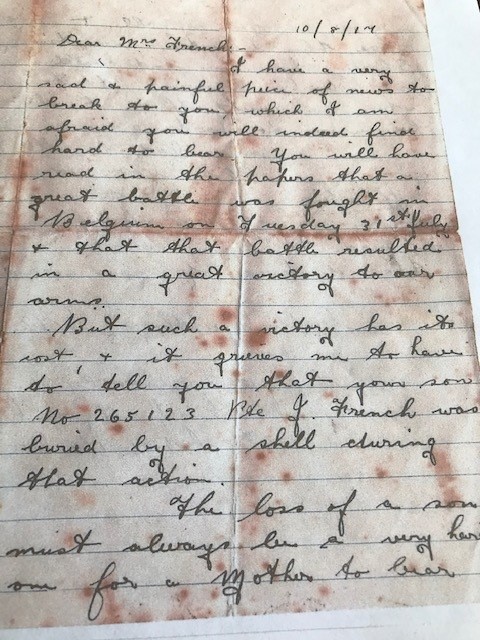 10/8/17
Dear Mrs French:-
I have a very
sad & painful piece of news to
break to you, which I am
afraid you will indeed find
hard to bear. You will have
read in the papers that a
great battle was fought in
Belgium on Tuesday 31st July
& that that battle resulted
in a great victory to our
arms.
But such a victory has its
cost, & it grieves me to have
to tell you that your son
No 265123 Pte J. French was
buried by a shell during
that action.
The loss of a son
must always be a very hard
one for a Mother to bear